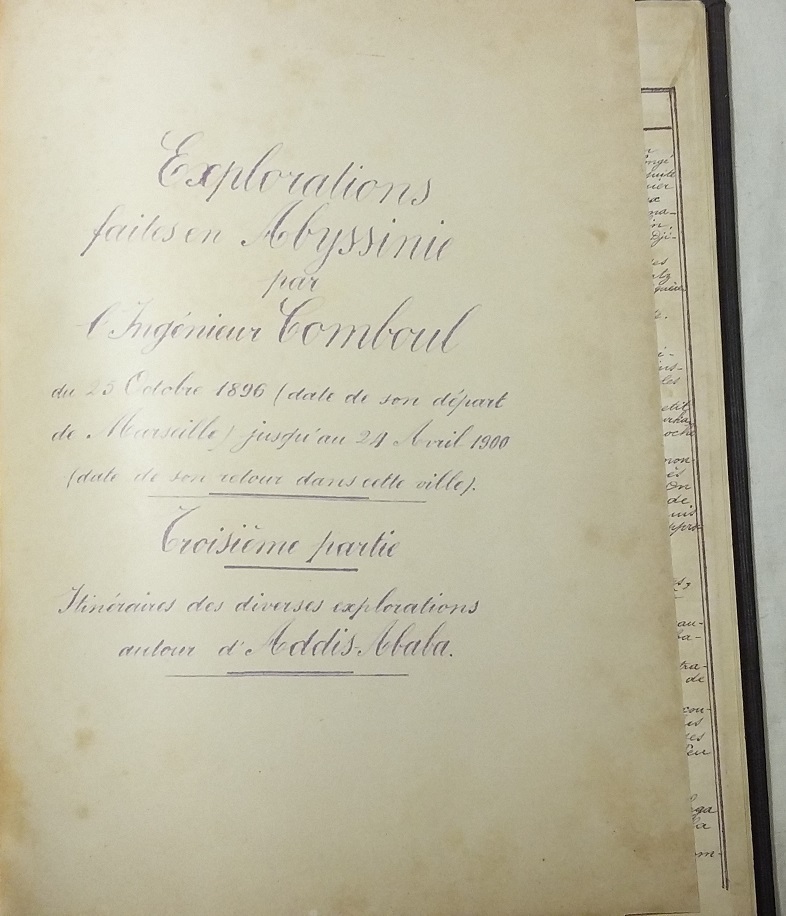 Explorations
faites en Abyssinie
par
l'Ingénieur Comboul
du 25 Octobre 1896 (date de son départ
de Marseille) jusqu'au 24 Avril 1900
(date de son retour dans cette ville).
Troisième partie
Itinéraires des diverses explorations
autour d'Addis-Ababa.